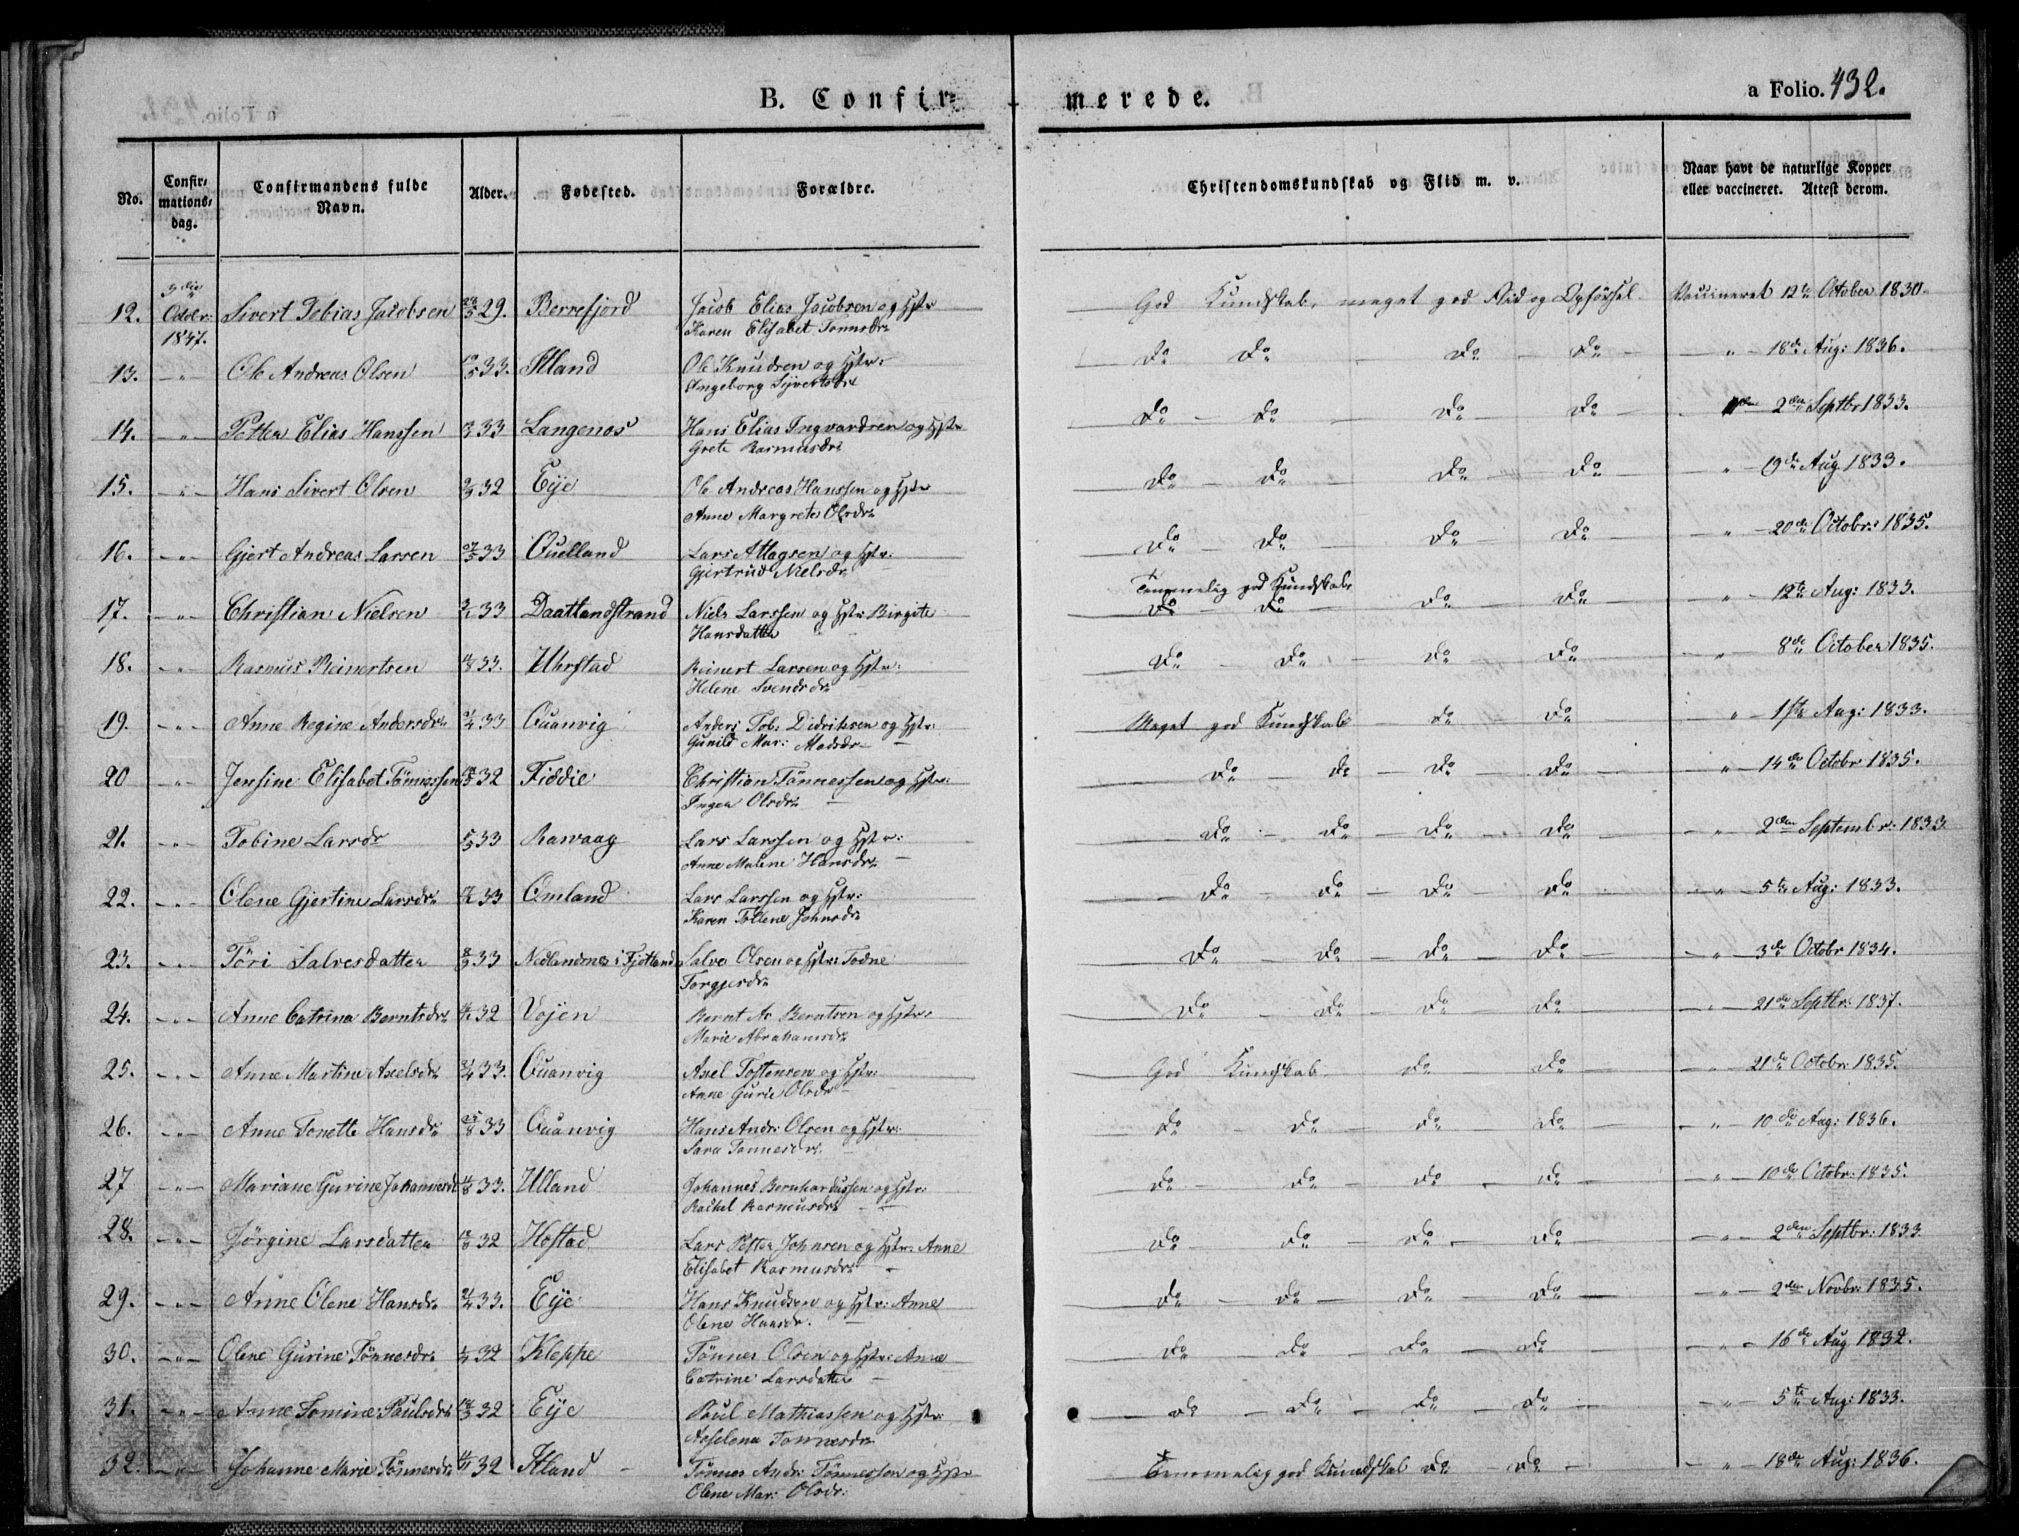 B. Confirmerede.
a Folio. 432.
No.
Confirmations-dag.
Confirmandens fulde Navn.
Alder.
Fødested.
Forældre.
Christendomskundskab og Flid m. v.
Naar havt de naturlige Kopper eller vaccineret. Attest derom.
12. 3die Octbr: 1847. Sivert Tobias Jacobsen 29. Berrefjord Jacob Elias Jacobsen og Hstr Karen Elisabet Tønnesdr God Kundskab, meget god Flid og Opførsel. Vaccineret 12te October 1830.
13. -"- Ole Andreas Olsen 33. Ole Knudsen og Hstr: Ingeborg Syvertsdr Do Do Do Do " 18de Aug: 1836.
14. -"- Petter Elias Hanssen 33 Langenes Hans Elias Ingvardsen og Hstr Grete Rasmusdr Do Do Do Do 2den Septbr 1833.
15. -"- Hans Sivert Olsen 32 Eije Ole Andreas Hanssen og Hstr Anne Margrete Olsdr Do Do Do Do " Aug 1833.
16. -"- Gjert Andreas Larsen 33 Quelland Lars Attagsen og Hstr. Gjertrud Nielsdr Do Do Do Do " 20de Octobr: 1835.
17. -"- Christian Nielsen 33 Daatlandstrand Niels Larssen og Hstr Birgite Hansdatter Temmelig god Kundskab Do Do " 12te Aug: 1833.
18. -"- Rasmus Reinertsen 33. Uhrstad Reinert Larsen og Hstr: Helene Svendsdr Do Do Do Do " 8de October 1835.
19. -"- Anne Regine Andersdr 33 Quanvig Anders Tob: Didriksen og Hstr: Gunild Mar: Madsdr Meget god Kundskab Do Do " 1ste Aug: 1833.
20 -"- Jensine Elisabet Tønnessen 32 Fiddie Christian Tønnessen og Hstr: Inger Olsdr Do Do Do Do " 14de Octobr 1835.
21. -"- Tobine Larsdr 33 Ravaag Lars Larssen og Hstr: Anne Malene Hansdr Do Do Do Do " 2den Septembr: 1833
22. -"- Olene Gjertine Larsdr 33 Omland Lars Larssen og Hstr: Karen Tollene Johnsdr Do Do Do Do " 5te Aug: 1833.
23. -"- Tøri Salvesdatter 33 Nedlandnes i Fjotland Salve Olsen og Hstr: Todne Torgjersdr Do Do Do Do " 3de Octobr 1834.
24. -"- Anne Catrine Berntsdr 32 Vojen Bernt As Berntsen og Hstr: Marie Abrahamsdr Do Do Do Do " 21de Septbr: 1837.
25. -"- Anne Martine Axelsdr 33. Quanvig Axel Tostensen og Hstr: Anne Gurie Olsdr God Kundskab Do Do " 21de Octobr: 1835.
26. -"- Anne Tonette Hansdr 33 Quanvig Hans Andr: Olsen og Hstr: Sara Tønnesdr Do Do Do Do " 10de Aug: 1836.
27 -"- Mariane Gurine Johannesdr 33. Ulland Johannes Bernhardussen og Hstr: Rachel Rasmusdr Do Do Do Do " 10de Octobr: 1835.
28. -"- Jørgine Larsdatter 32 Hostad Lars Petter Johnsen og Hstr: Anne Elisabet Rasmusdr Do Do Do Do " 2den Septbr: 1833
29. -"- Anne Olene Hansdr 33. Eije Hans Knudsen og Hstr: Anne Olene Hansdr. Do Do Do Do " 2den Novbr: 1835.
30. -"- Olene Gurine Tønnesdr 32 Kleppe Tønnes Olsen og Hstr: Anne Catrine Larsdatter Do Do Do Do " 16de Aug 1832.
31. -"- Anne Tomine Paulsdr 32 Eije Poul Mathiassen og Hstr: Asselena Tønnesdr Do Do Do Do " 5te Aug: 1833.
32. -"- Johanne Marie Tønnesdr 32 Tønnes Andr: Tønnessen og Hstr Olene Mar: Olsdr: Temmelig god Kundskab Do Do " 18de Aug: 1836.